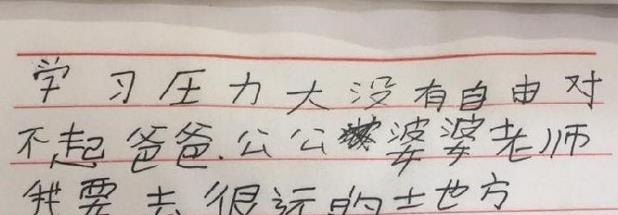 学习压力大没有自由对
不起爸爸.公公婆婆老师
我要去很远的地方